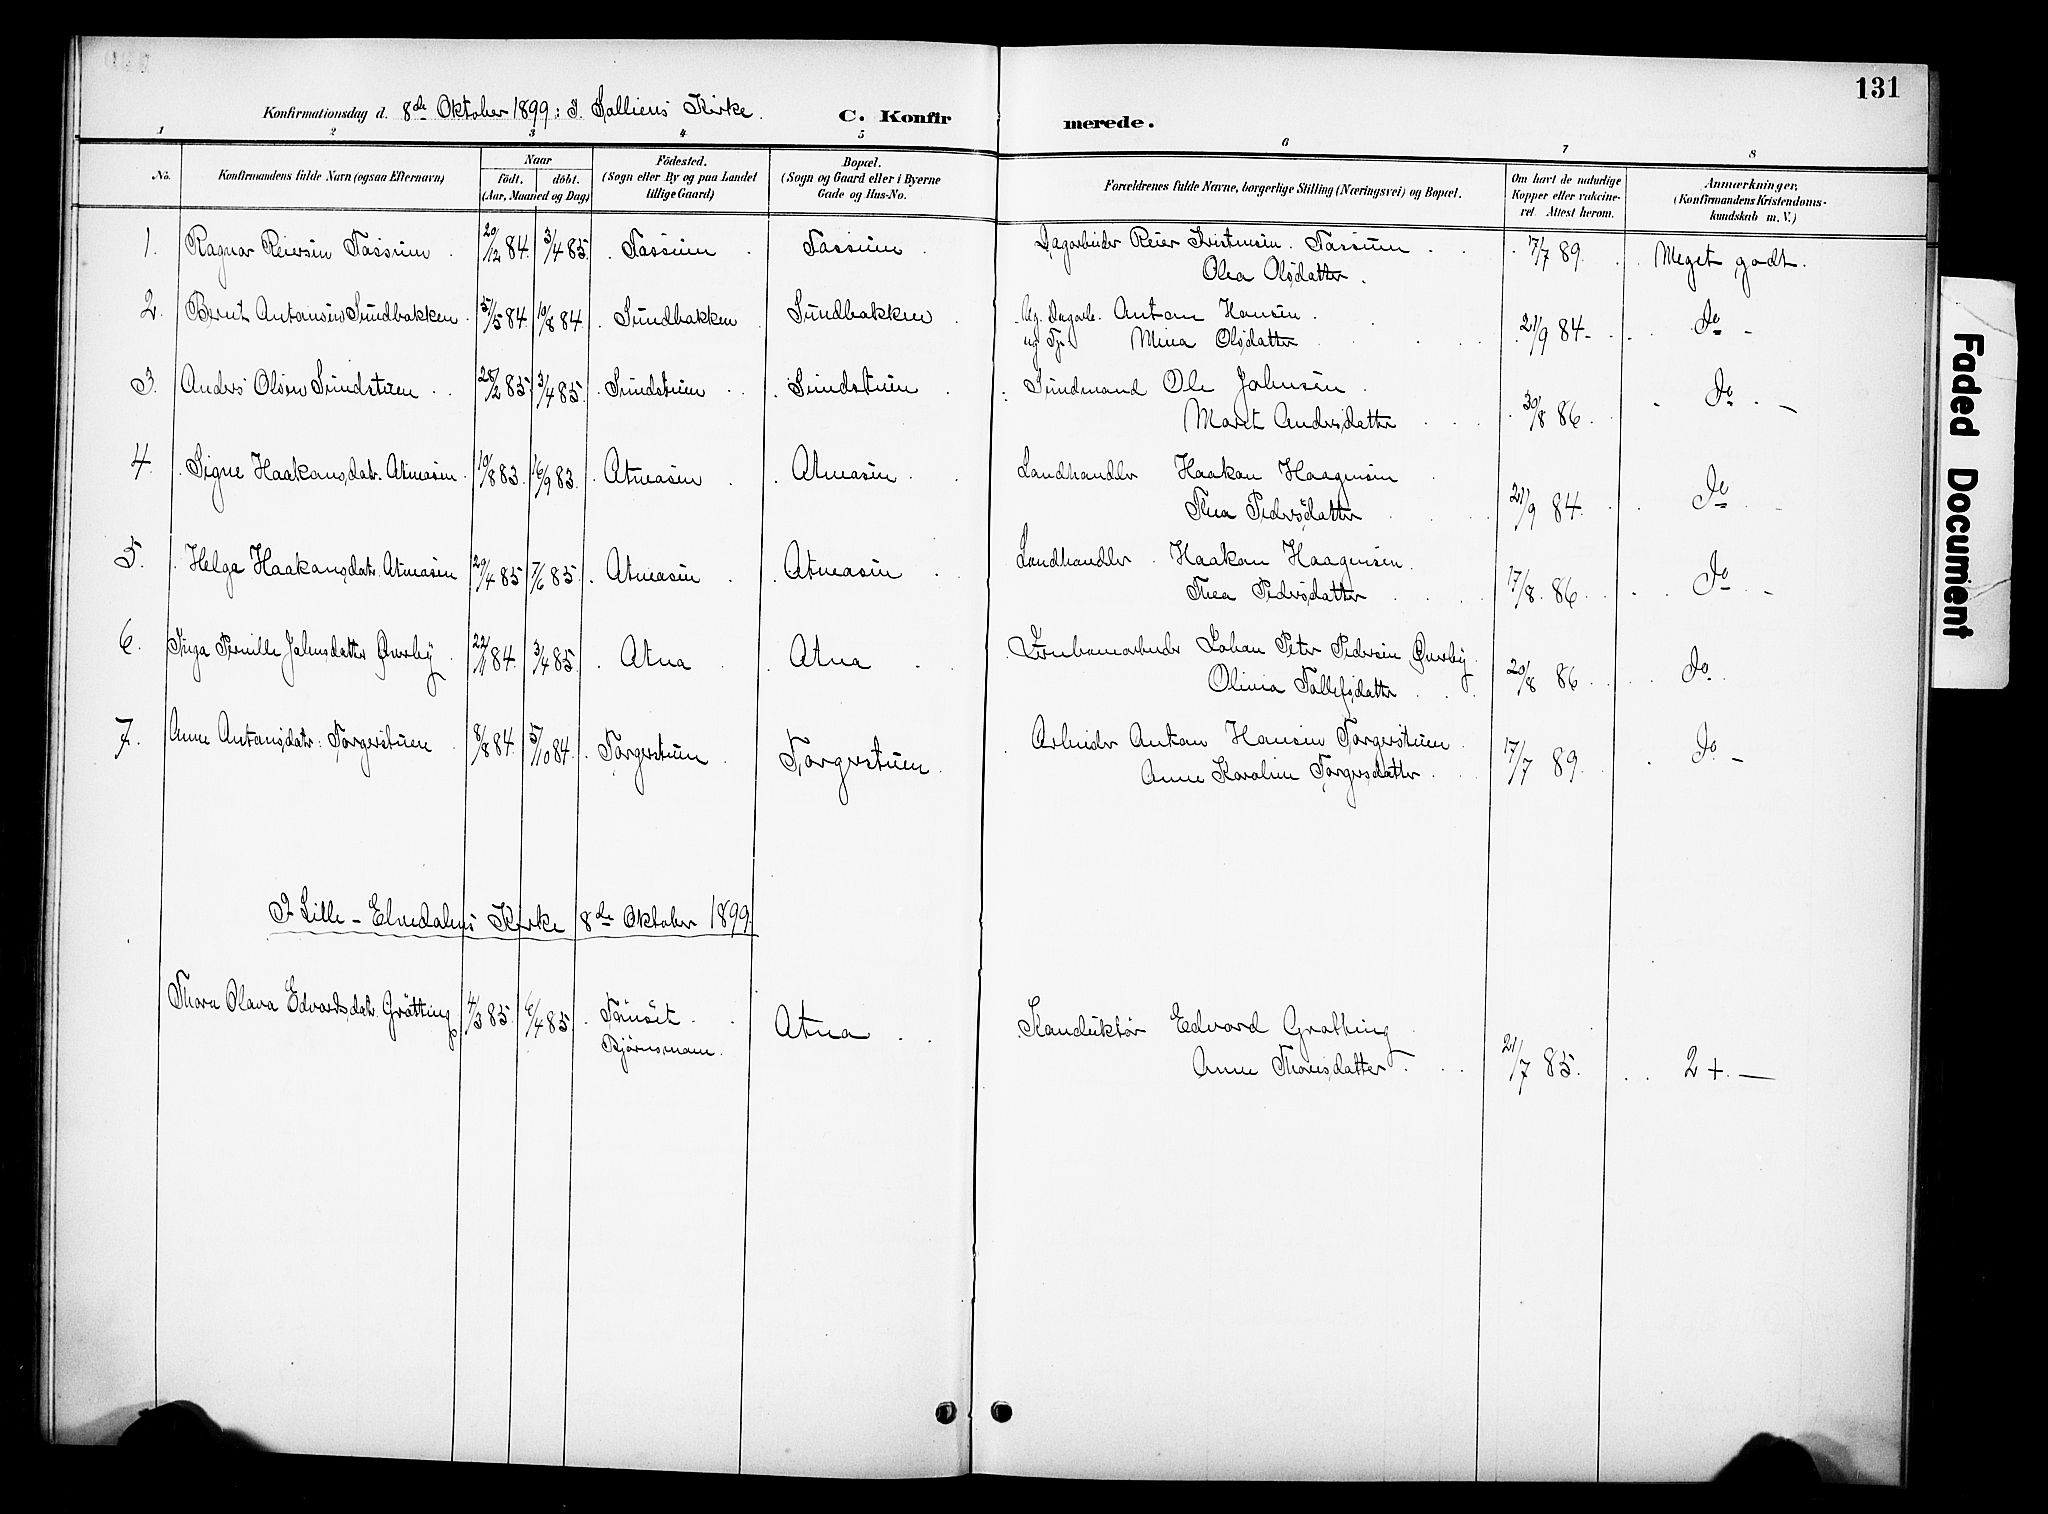 131
Konfirmationsdag d. 8de Oktober 1899: I Solliens Kirke. C. Konfirmerede.
1 2 3 4 5 6 7 8
No. Konfirmandens fulde Navn (ogsaa Efternavn) Naar født. døbt. (Aar, Maaned og Dag) Fødested. (Sogn eller By og paa Landet tillige Gaard) Bopæl. (Sogn og Gaard eller i Byerne Gade og Hus-No. Forældrenes fulde Navne, borgerlige Stilling (Næringsvei) og Bopæl. Om havt de naturlige Kopper eller vakcineret. Attest herom. Anmærkninger, (Konfirmandens Kristendomskundskab m. V.)
1. Ragnar Reiersen Fassum 20/12 84. 3/4 85. Fassum Fassum Dagarbeider Reier Kristensen Fassum 17/7 89. Meget godt.
Olea Olsdatter.
2. Bernt Antonsen Sundbakken 31/5 84 10/8 84 Sundbakken Sundbakken Ug. Dagarb. Anton Hansen 21/9 84 Do
og Mina Olsdatter
3. Anders Olsen Sundstuen 28/2 85. 3/4 85. Sundstuen Sundstuen Ole Johnsen 30/8 86 Do
Maret Andersdatter
4. Signe Haakonsdatr. Atneosen 10/8 83. 16/9 83. Atneosen Atneosen Landhandler Haakon Haagensen 21/9 84 Do
Thea Pedersdatter
5. Helga Haakonsdatr. Atneosen 20/4 85 7/6 85. Atneosen Atneosen Landhandler Haakon Haagensen 17/8 86 Do
Thea Pedersdatter
6. Inga Pernille Johnsdatter Øverby 22/11 84. 3/4 85. Atna Atna Jernbanearbeider Johan Peter Pedersen Øverby 20/8 86 Do.
Olivia Tollefsdatter
7. Anne Antonsdatr. Torgerstuen 8/8 84. 5/10 84. Torgerstuen Torgerstuen Arbeider Anton Hansen Torgerstuen 17/7 89. Do.
Anne Karoline Torgersdatter.
I Lille-Elvedalens Kirke 8de Oktober 1899.
Thora Olava Edvardsdatr. Grøtting 4/3 85. 6/4 85 Tønset. Atna Konduktør Edvard Grøtting
Bjørnsmoen. Anne Thoresdatter. 21/7 85. 2+.
Faded Document